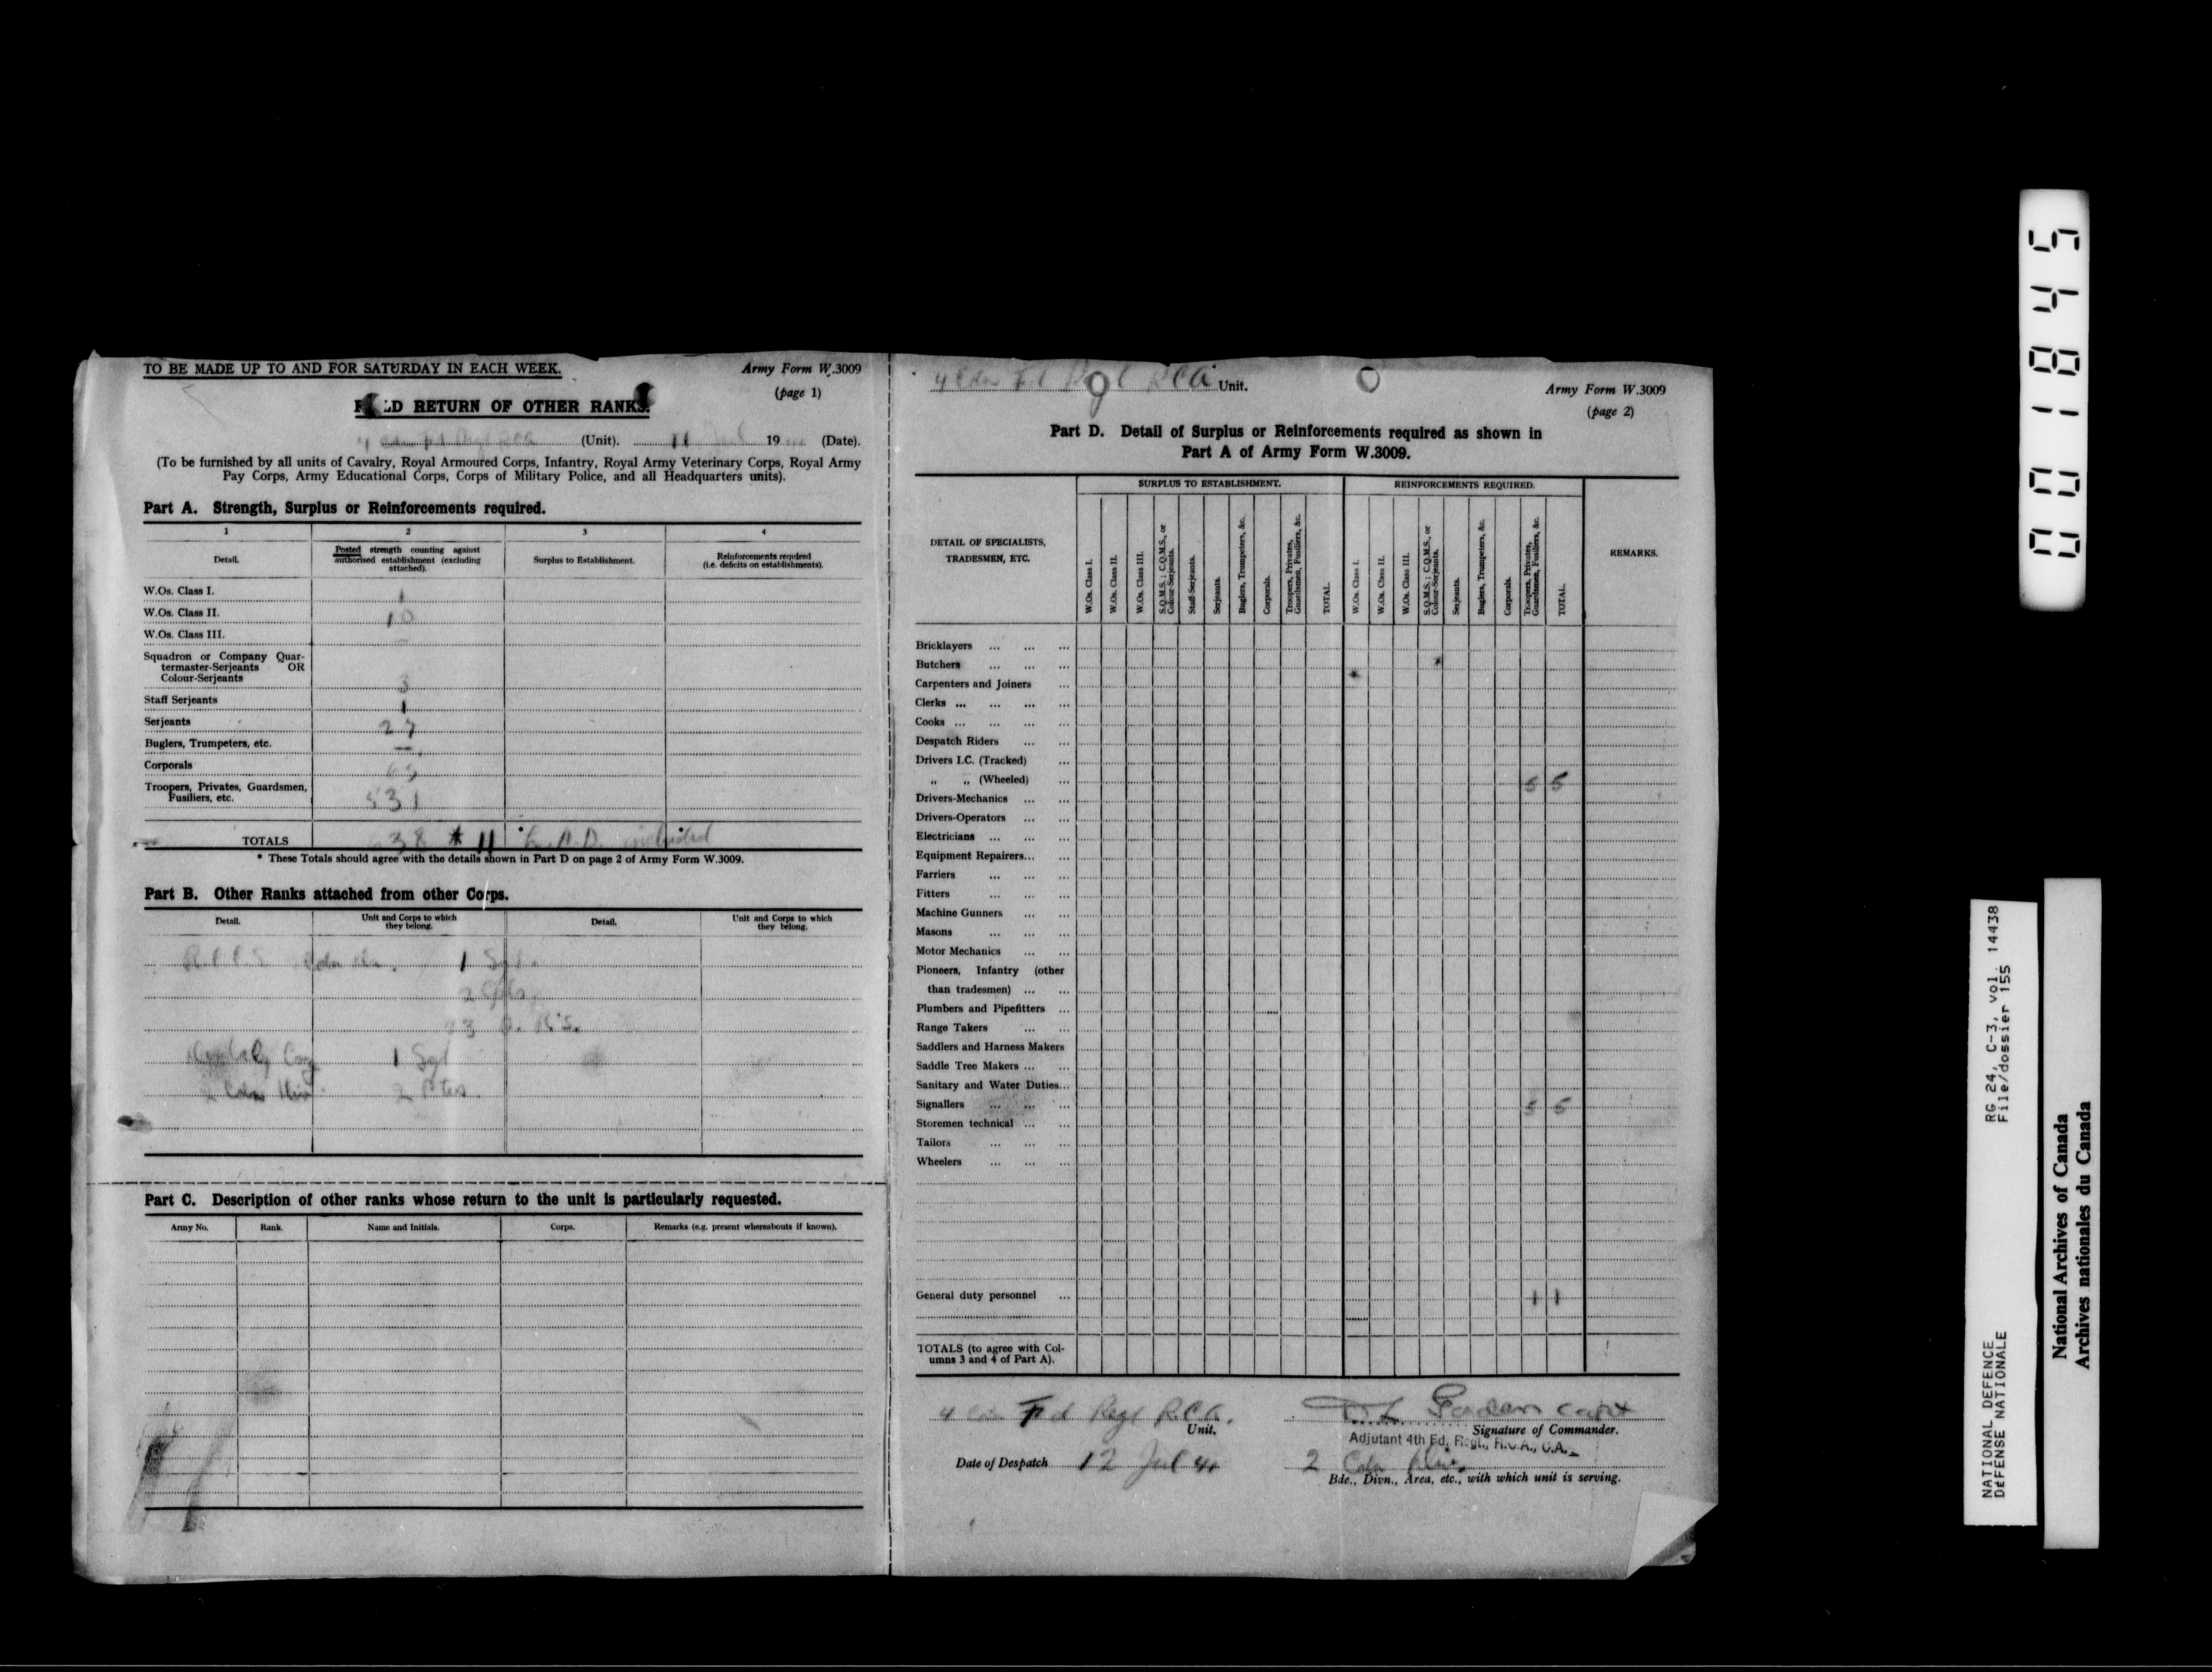 TO BE MADE UP TO AND FOR SATURDAY IN EACH WEEK.
Army Form W.3009
(page 1)
RETURN OF OTHER RANKS.
4 Cdn Fd Regt RCA (Unit). 11 19 (Date).
(To be furnished by all units of Cavalry, Royal Armoured Corps, Infantry, Royal Army Veterinary Corps, Royal Army
Pay Corps, Army Educational Corps, Corps of Military Police, and all Headquarters units).
Part A. Strength, Surplus or Reinforcements required.
1 2 3 4
Detail.
Posted strength counting against
authorised establishment (excluding
attached).
Surplus to Establishment.
Reinforcements required
(i.e. deficits on establishments).
W.Os. Class I. 1
W.Os. Class II. 10
W.Os. Class III. —
Squadron or Company Quar-
termaster-Serjeants OR
Colour-Serjeants 3
Staff Serjeants 1
Serjeants 27
Buglers, Trumpeters, etc. —
Corporals 65
Troopers, Privates, Guardsmen,
Fusiliers, etc. 531
TOTALS 638 * 11 included
* These Totals should agree with the details shown in Part D on page 2 of Army Form W.3009.
Part B. Other Ranks attached from other Corps.
Detail.
Unit and Corps to which
they belong.
Detail.
Unit and Corps to which
they belong.
1 Sgt.
2 Cpls.
1 Sgt
2 Cdn Div. 2 Ptes
Part C. Description of other ranks whose return to the unit is particularly requested.
Army No. Rank. Name and Initials. Corps. Remarks (e.g. present whereabouts if known).
4 Cdn Fd Regt RCA Unit.
Army Form W.3009
(page 2)
Part D. Detail of Surplus or Reinforcements required as shown in
Part A of Army Form W.3009.
DETAIL OF SPECIALISTS,
TRADESMEN, ETC.
SURPLUS TO ESTABLISHMENT.
W.Os. Class I.
W.Os. Class II.
W.Os. Class III.
S.Q.M.S.; C.Q.M.S., or
Colour-Serjeants.
Staff-Serjeants.
Serjeants.
Buglers, Trumpeters, &c.
Corporals.
Troopers, Privates,
Guardsmen, Fusiliers, &c.
TOTAL.
REINFORCEMENTS REQUIRED.
W.Os. Class I.
W.Os. Class II.
W.Os. Class III.
S.Q.M.S.; C.Q.M.S., or
Colour-Serjeants.
Serjeants.
Buglers, Trumpeters, &c.
Corporals.
Troopers, Privates,
Guardsmen, Fusiliers, &c.
TOTAL.
REMARKS.
Bricklayers ... ... ...
Butchers ... ... ...
Carpenters and Joiners ...
Clerks ... ... ... ...
Cooks ... ... ... ...
Despatch Riders ... ...
Drivers I.C. (Tracked) ...
„ „ (Wheeled) ... 5 5
Drivers-Mechanics ... ...
Drivers-Operators ... ...
Electricians ... ... ...
Equipment Repairers... ...
Farriers ... ... ...
Fitters ... ... ...
Machine Gunners ... ...
Masons ... ... ...
Motor Mechanics ... ...
Pioneers, Infantry (other
than tradesmen) ... ...
Plumbers and Pipefitters ...
Range Takers ... ...
Saddlers and Harness Makers
Saddle Tree Makers ... ...
Sanitary and Water Duties...
Signallers ... ... ... 5 5
Storemen technical ... ...
Tailors ... ... ...
Wheelers ... ... ...
General duty personnel ... 1 1
TOTALS (to agree with Col-
umns 3 and 4 of Part A).
4 Cdn Fd Regt RCA.
Unit.
Capt
Signature of Commander.
Adjutant 4th Fd. Regt., R.C.A., C.A.
Date of Despatch 12 Jul 41
2 Cdn Div.
Bde., Divn., Area, etc., with which unit is serving.
001845
NATIONAL DEFENCE RG 24, C-3, vol. 14438
DÉFENSE NATIONALE File/dossier 155
National Archives of Canada
Archives nationales du Canada